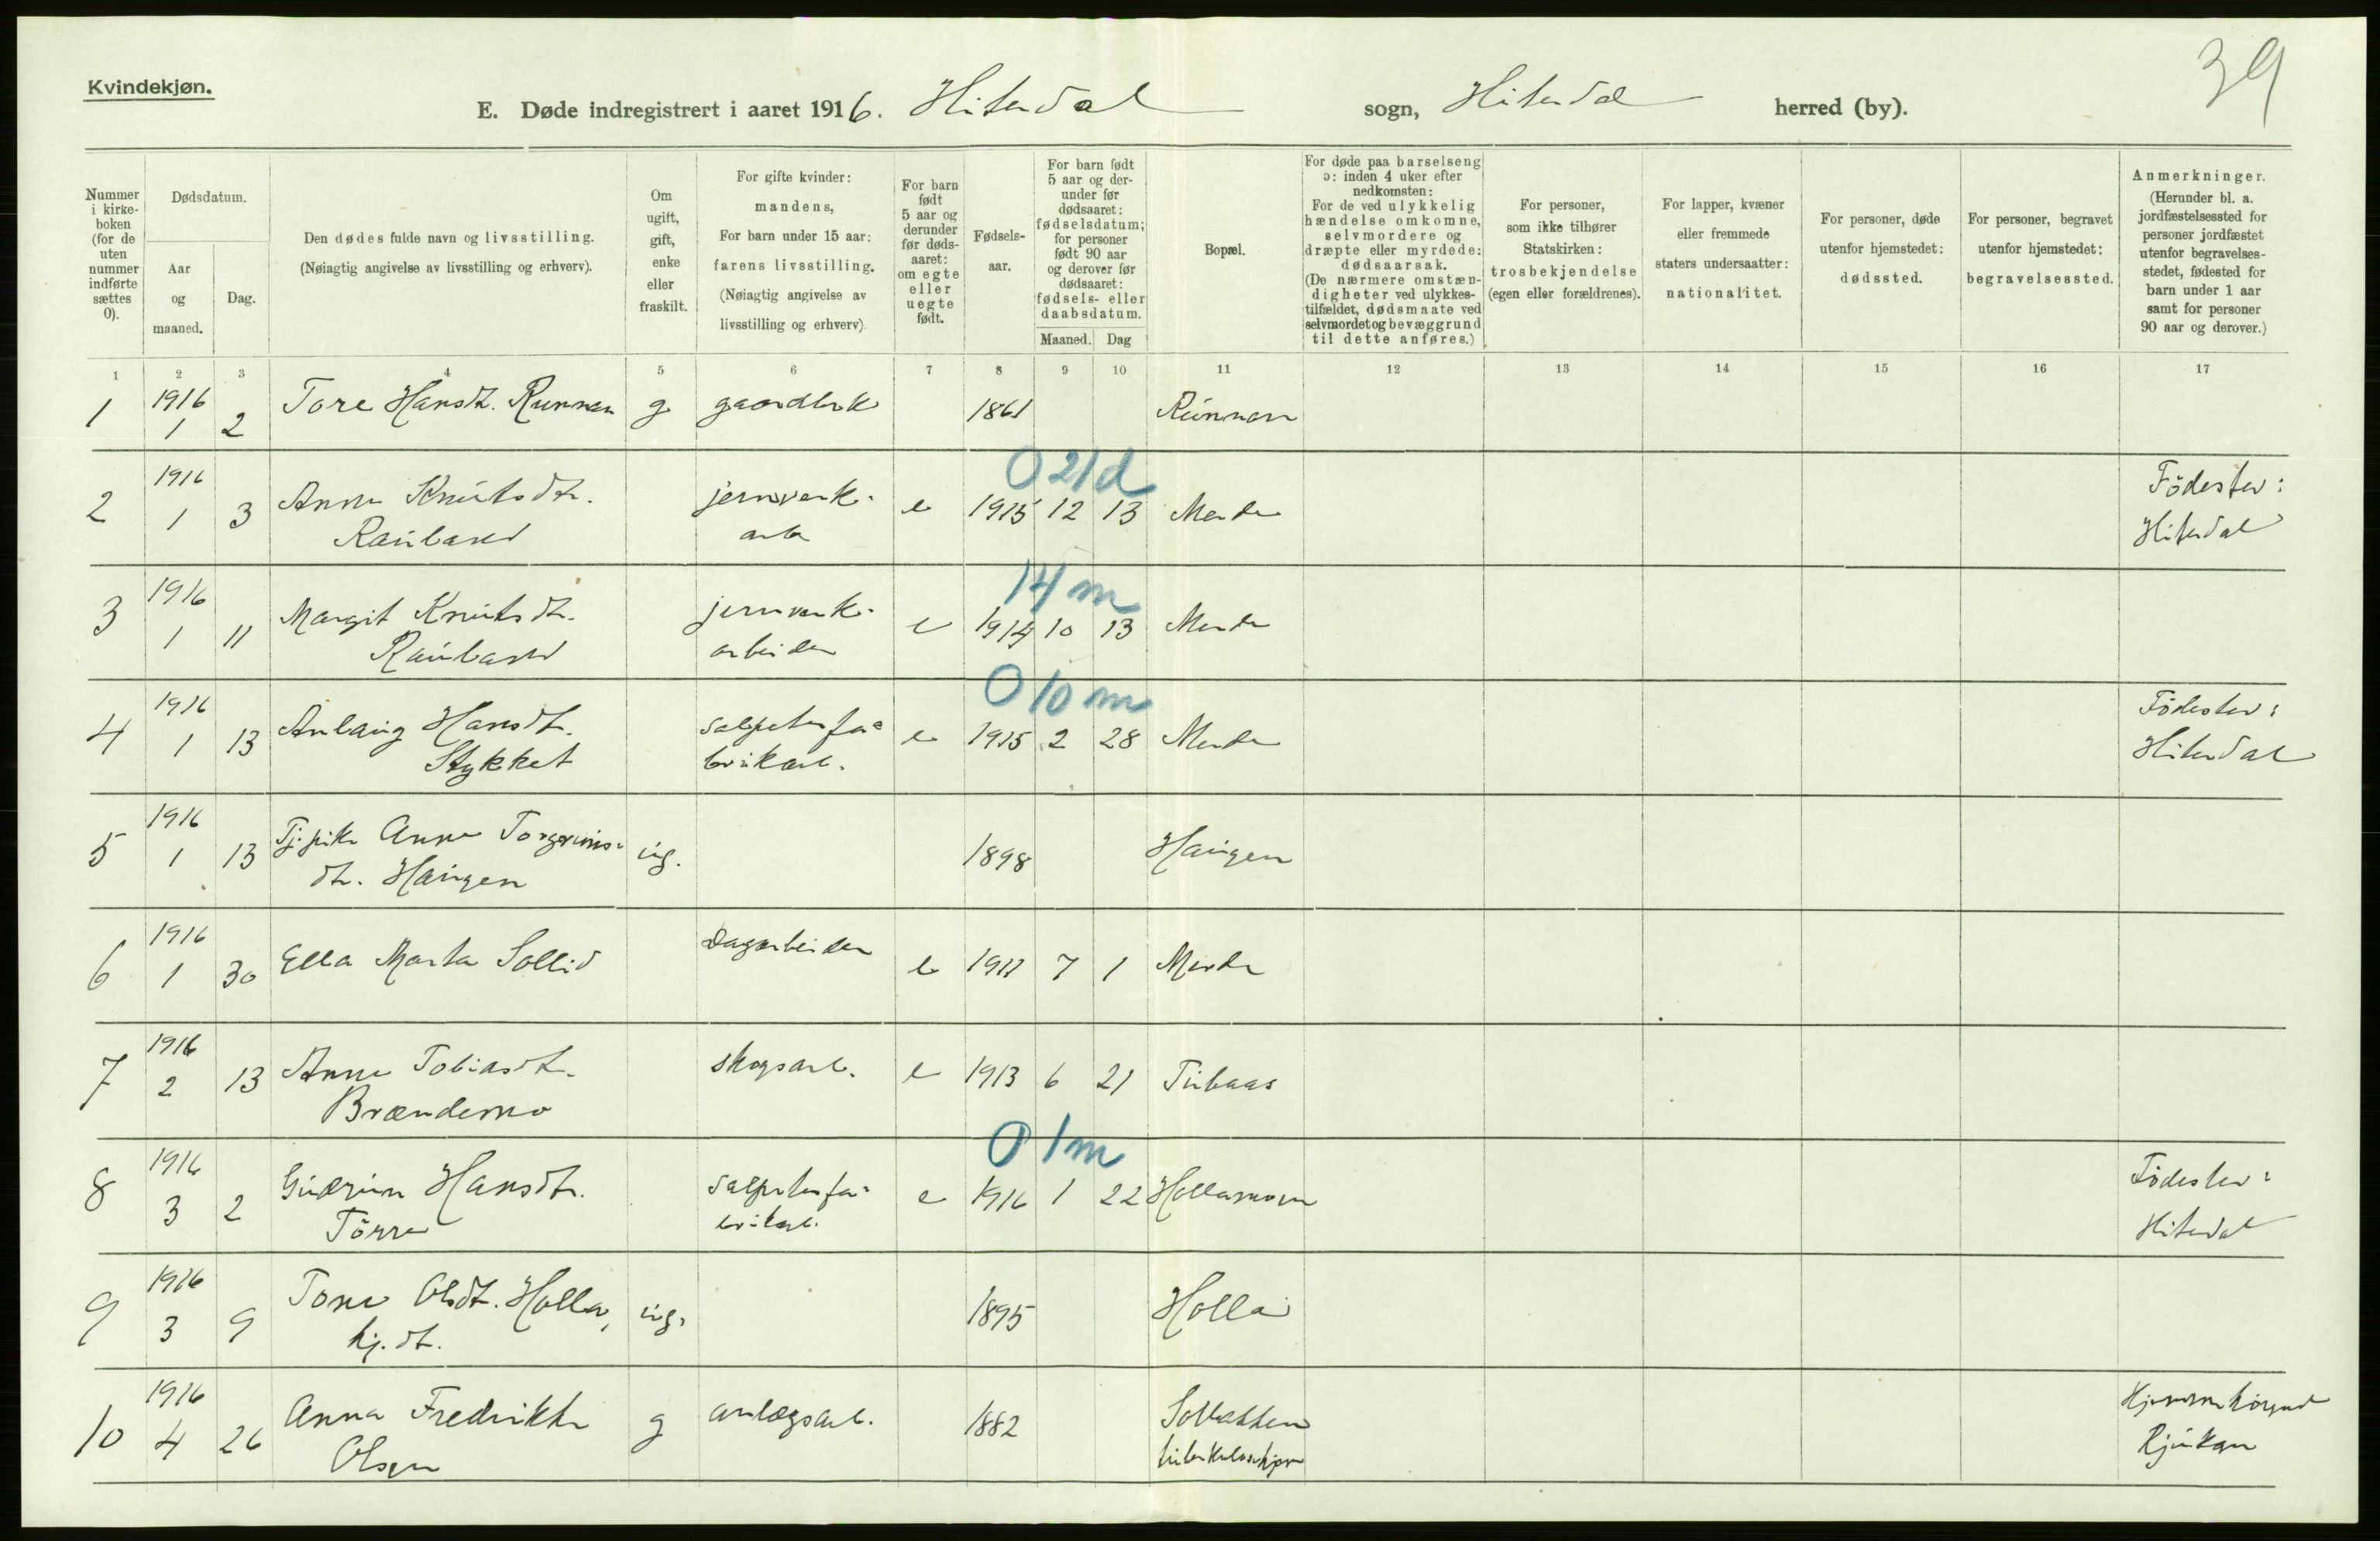 39
Kvindekjøn.
E. Døde indregistrert i aaret 1916. Hiterdal sogn, Hiterdal herred (by).
Nummer i kirke-boken (for de uten nummer indførte sættes 0).
Dødsdatum.
Aar og maaned.
Dag.
Den dødes fulde navn og livsstilling. (Nøiagtig angivelse av livsstilling og erhverv).
Om ugift, gift, enke eller fraskilt.
For gifte kvinder: mandens, For barn under 15 aar: farens livsstilling. (Nøiagtig angivelse av livsstilling og erhverv)
For barn født 5 aar og derunder før døds-aaret: om egte eller uegte født.
Fødsels-aar.
For barn født 5 aar og der-under før dødsaaret: fødselsdatum; for personer født 90 aar og derover før dødsaaret: fødsels- eller daabsdatum.
Maaned. Dag
Bopæl.
For døde paa barselseng ɔ: inden 4 uker efter nedkomsten: For de ved ulykkelig hændelse omkomne, selvmordere og dræpte eller myrdede: dødsaarsak. (De nærmere omstæn-digheter ved ulykkes-tilfældet, dødsmaate ved selvmordet og bevæggrund til dette anføres.)
For personer, som ikke tilhører Statskirken: trosbekjendelse (egen eller forældrenes).
For lapper, kvæner eller fremmede staters undersaatter: nationalitet.
For personer, døde utenfor hjemstedet: dødssted.
For personer, begravet utenfor hjemstedet: begravelsessted.
Anmerkninger. (Herunder bl. a. jordfæstelsessted for personer jordfæstet utenfor begravelses-stedet, fødested for barn under 1 aar samt for personer 90 aar og derover.)
1 2 3 4 5 6 7 8 9 10 11 12 13 14 15 16 17
1 1916 1 2 Tore Hansdt. Runnan g gaardbrk 1861 Runnan
021d
2 1916 1 3 Anne Knutsdtr. Rauland jernverk-arb e 1915 12 13 Merde Födestev: Hiterdal
14 m
3 1916 1 11 Margit Knutsdt. Rauland jernverk-arbeider e 1914 10 13 Merde
0 10 m
4 1916 1 13 Anlaug Hansdt. Stykket salpeterfa=brikarb. e 1915 2 28 Merde Födestev: Hiterdal
5 1916 1 13 Tj.pike Anne Torgrims-dt. Haugen ug. 1898 Haugen
6 1916 1 30 Ella Marta Sollid Dagarbeider e 1911 7 1 Merde
7 1916 2 13 Anne Tobiasdt. Brændemo skogsarb. e 1913 6 21 Tubaas
0 1m
8 1916 3 2 Gudrun Hansdt. Törre salpeterfa=brikarb. e 1916 1 22 Hollamoen Födestev: Hiterdal
9 1916 3 9 Tone Olsdt. Holla, hj.dt. ug. 1895 Holla
10 1916 4 26 Anna Fredrikke Olsen g anlægsarb. 1882 Solbakken tuberkulosehjem Rjukan